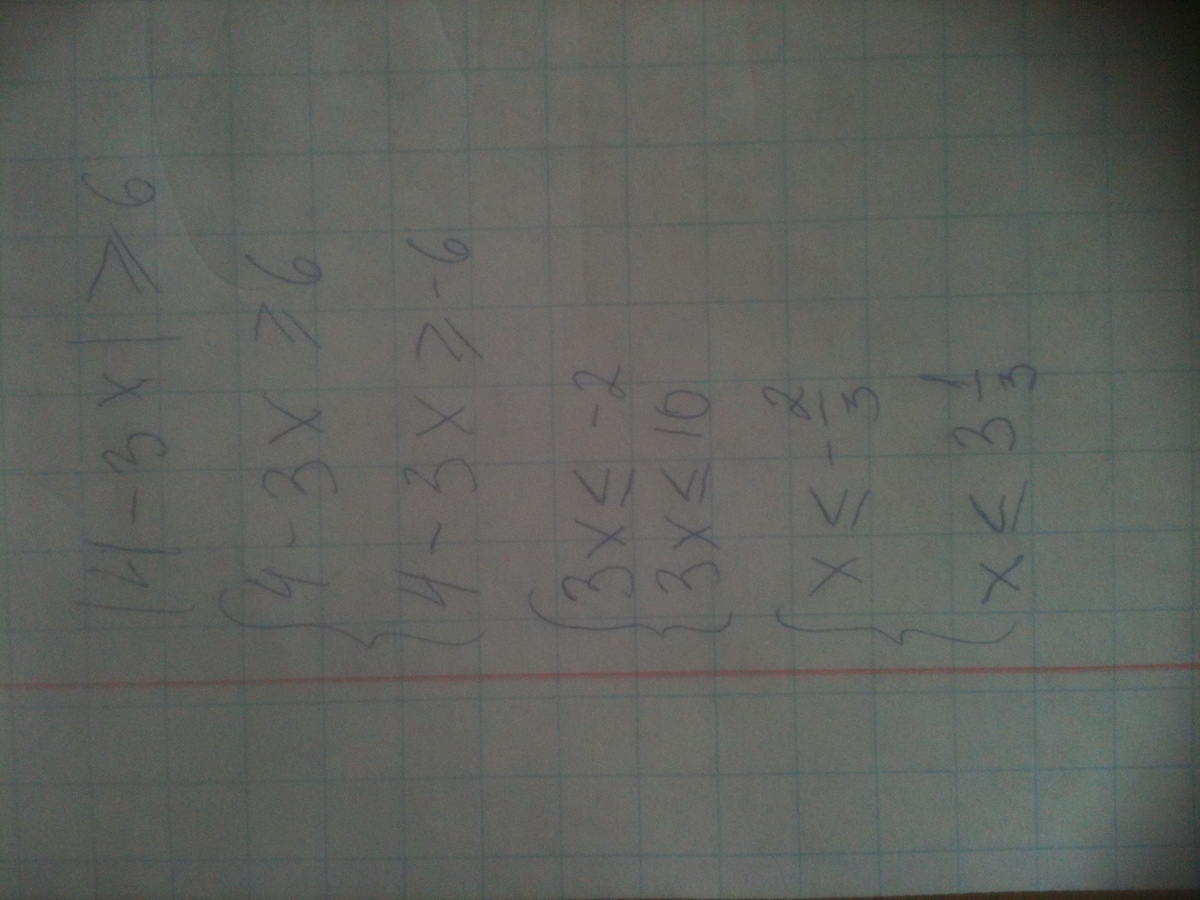 |4 - 3x| ⩾ 6
{ 4 - 3x ⩾ 6
4 - 3x ⩾ -6
{ 3x ≤ -2
3x ≤ 10
{ x ≤ -2/3
x ≤ 3 1/3